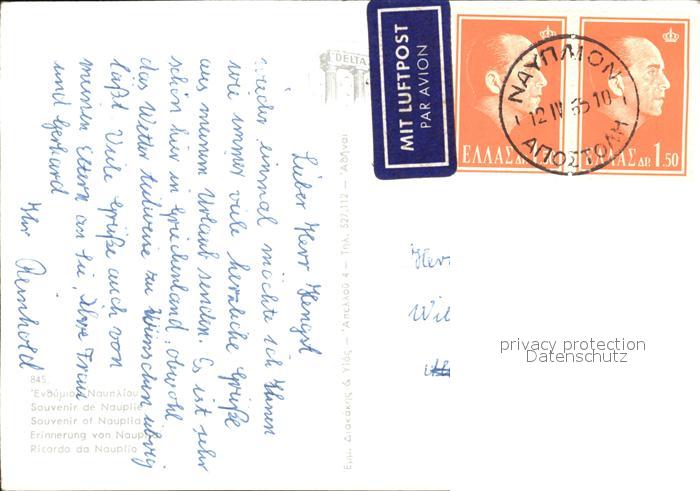 Lieber Herr Hengst
wieder einmal möchte ich Ihnen
wie immer viele herzliche Grüße
aus meinem Urlaub senden. Es ist sehr
schön hier in Griechenland, obwohl
das Wetter teilweise zu wünschen übrig
läßt. Viele Grüße auch von
meinen Eltern an Sie, Ihre Frau
und Gerhard
Ihr Reinhold
845.
Ἐνθύμιον Ναυπλίου
Souvenir de Nauplie
Souvenir of Nauplia
Erinnerung von Naupl
Ricordo da Nauplio
Εμμ. Διακάκης & Υἱός – Ἀπελλοῦ 4 – Τηλ. 527.112 – Ἀθῆναι
DELTA
MIT LUFTPOST
PAR AVION
ΕΛΛΑΣ ΔΡ. 1.50
ΕΛΛΑΣ ΔΡ. 1.50
ΝΑΥΠΛΙΟΝ
12 IV 65 10
ΑΠΟΣΤΟΛΗ
Herr
Wil
privacy protection
Datenschutz